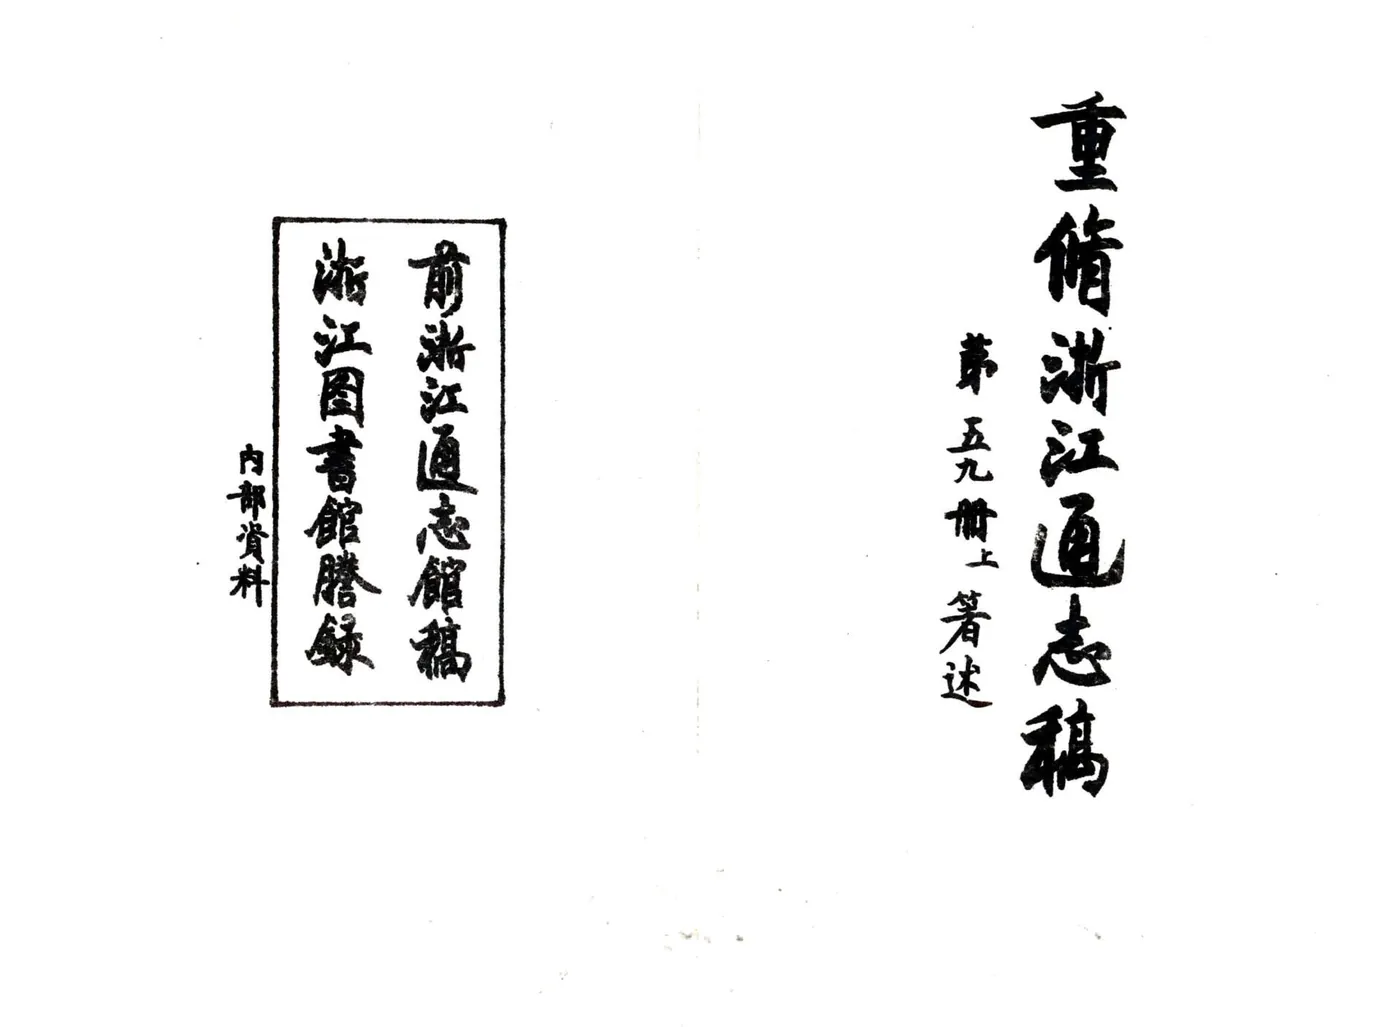 重脩浙江通志稿
第五九册上 箸述
前浙江通志館稿
浙江图書館謄録
内部資料